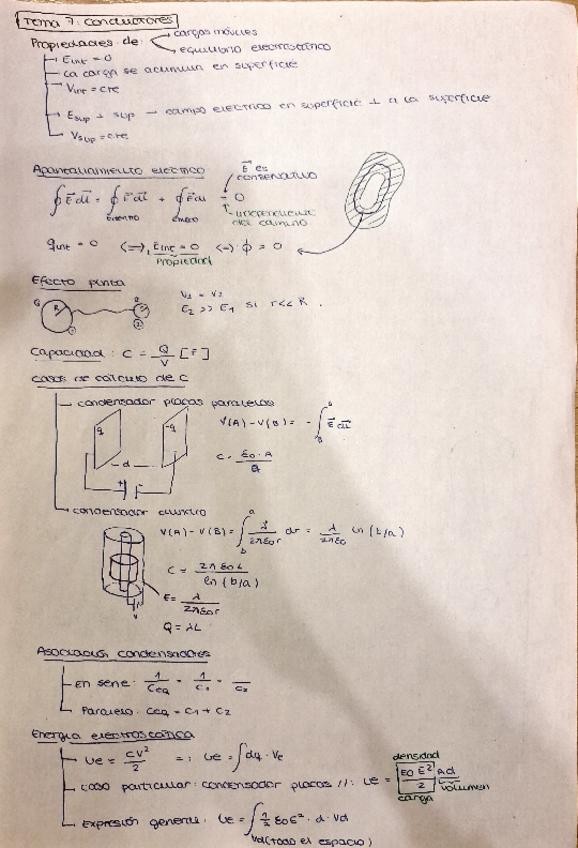 Tema 7: conductores
Propiedades de: cargas móviles
equilibrio electrostático
Eint = 0
La carga se acumula en superficie
Vint = cte
Esup ⊥ sup → campo electrico en superficie ⊥ a la superficie
Vsup = cte
Apantallamiento electrico
E⃗ es conservativo
∮ E⃗ dl⃗ = ∮ E⃗ dl⃗ + ∮ E⃗ dl = 0
dentro
- independiente del camino
qint = 0 <=> Eint = 0 <=> ϕ = 0
Propiedad
Efecto punta
R
① ②
V1 = V2
E2 >> E1 si r << R.
Capacidad: C = Q/V [F]
Casos de cálculo de C
condensador placas paralelas
q -q
d
+ -
V(A) - V(B) = - ∫ E⃗ dl⃗
C = ε0 · A / d
condensador cilindrico
V(A) - V(B) = ∫ λ/2πε0r dr = λ/2πε0 ln (b/a)
C = 2πε0L / ln (b/a)
E = λ/2πε0r
Q = λL
Asociacion condensadores
En serie: 1/Ceq = 1/C1 - /C2
Paralelo: Ceq = C1 + C2
Energia electrostatica
Ue = CV²/2 =; Ue = ∫dq · Ve
caso particular: condensador placas //: Ue = [ε0 E²/2] Ad
densidad
carga
volumen
Expresion general: Ue = ∫ ½ ε0E² · d · Vd
Vd (todo el espacio)